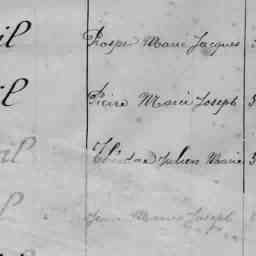 il Prosper Marie Jacques
il Pierre Marie Joseph
il Théodore Julien Marie
il Jean Marie Joseph